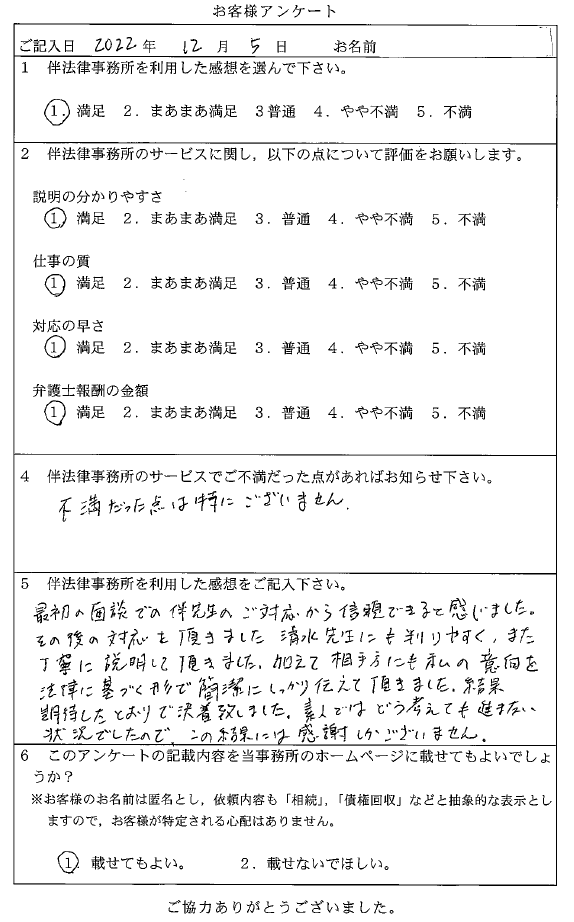 お客様アンケート
ご記入日 2022年 12月 5日 お名前
1 伴法律事務所を利用した感想を選んで下さい。
1. 満足 2. まあまあ満足 3普通 4. やや不満 5. 不満
2 伴法律事務所のサービスに関し,以下の点について評価をお願いします。
説明の分かりやすさ
1 満足 2. まあまあ満足 3. 普通 4. やや不満 5. 不満
仕事の質
1 満足 2. まあまあ満足 3. 普通 4. やや不満 5. 不満
対応の早さ
1 満足 2. まあまあ満足 3. 普通 4. やや不満 5. 不満
弁護士報酬の金額
1 満足 2. まあまあ満足 3. 普通 4. やや不満 5. 不満
4 伴法律事務所のサービスでご不満だった点があればお知らせ下さい。
不満だった点は特にございません.
5 伴法律事務所を利用した感想をご記入下さい。
最初の面談での伴先生のご対応から信頼できると感じました。
その後の対応を頂きました 清水先生にも判りやすく、また
丁寧に説明して頂きました. 加えて相手方にも私の意向を
法律に基づく形で簡潔にしっかり伝えて頂きました. 結果
期待したとおりで決着致しました. 素人ではどう考えても進まない
状況でしたので、この結果には感謝しかございません.
6 このアンケートの記載内容を当事務所のホームページに載せてもよいでしょ
うか?
※お客様のお名前は匿名とし,依頼内容も「相続」,「債権回収」などと抽象的な表示とし
ますので,お客様が特定される心配はありません。
1. 載せてもよい。 2. 載せないでほしい。
ご協力ありがとうございました。